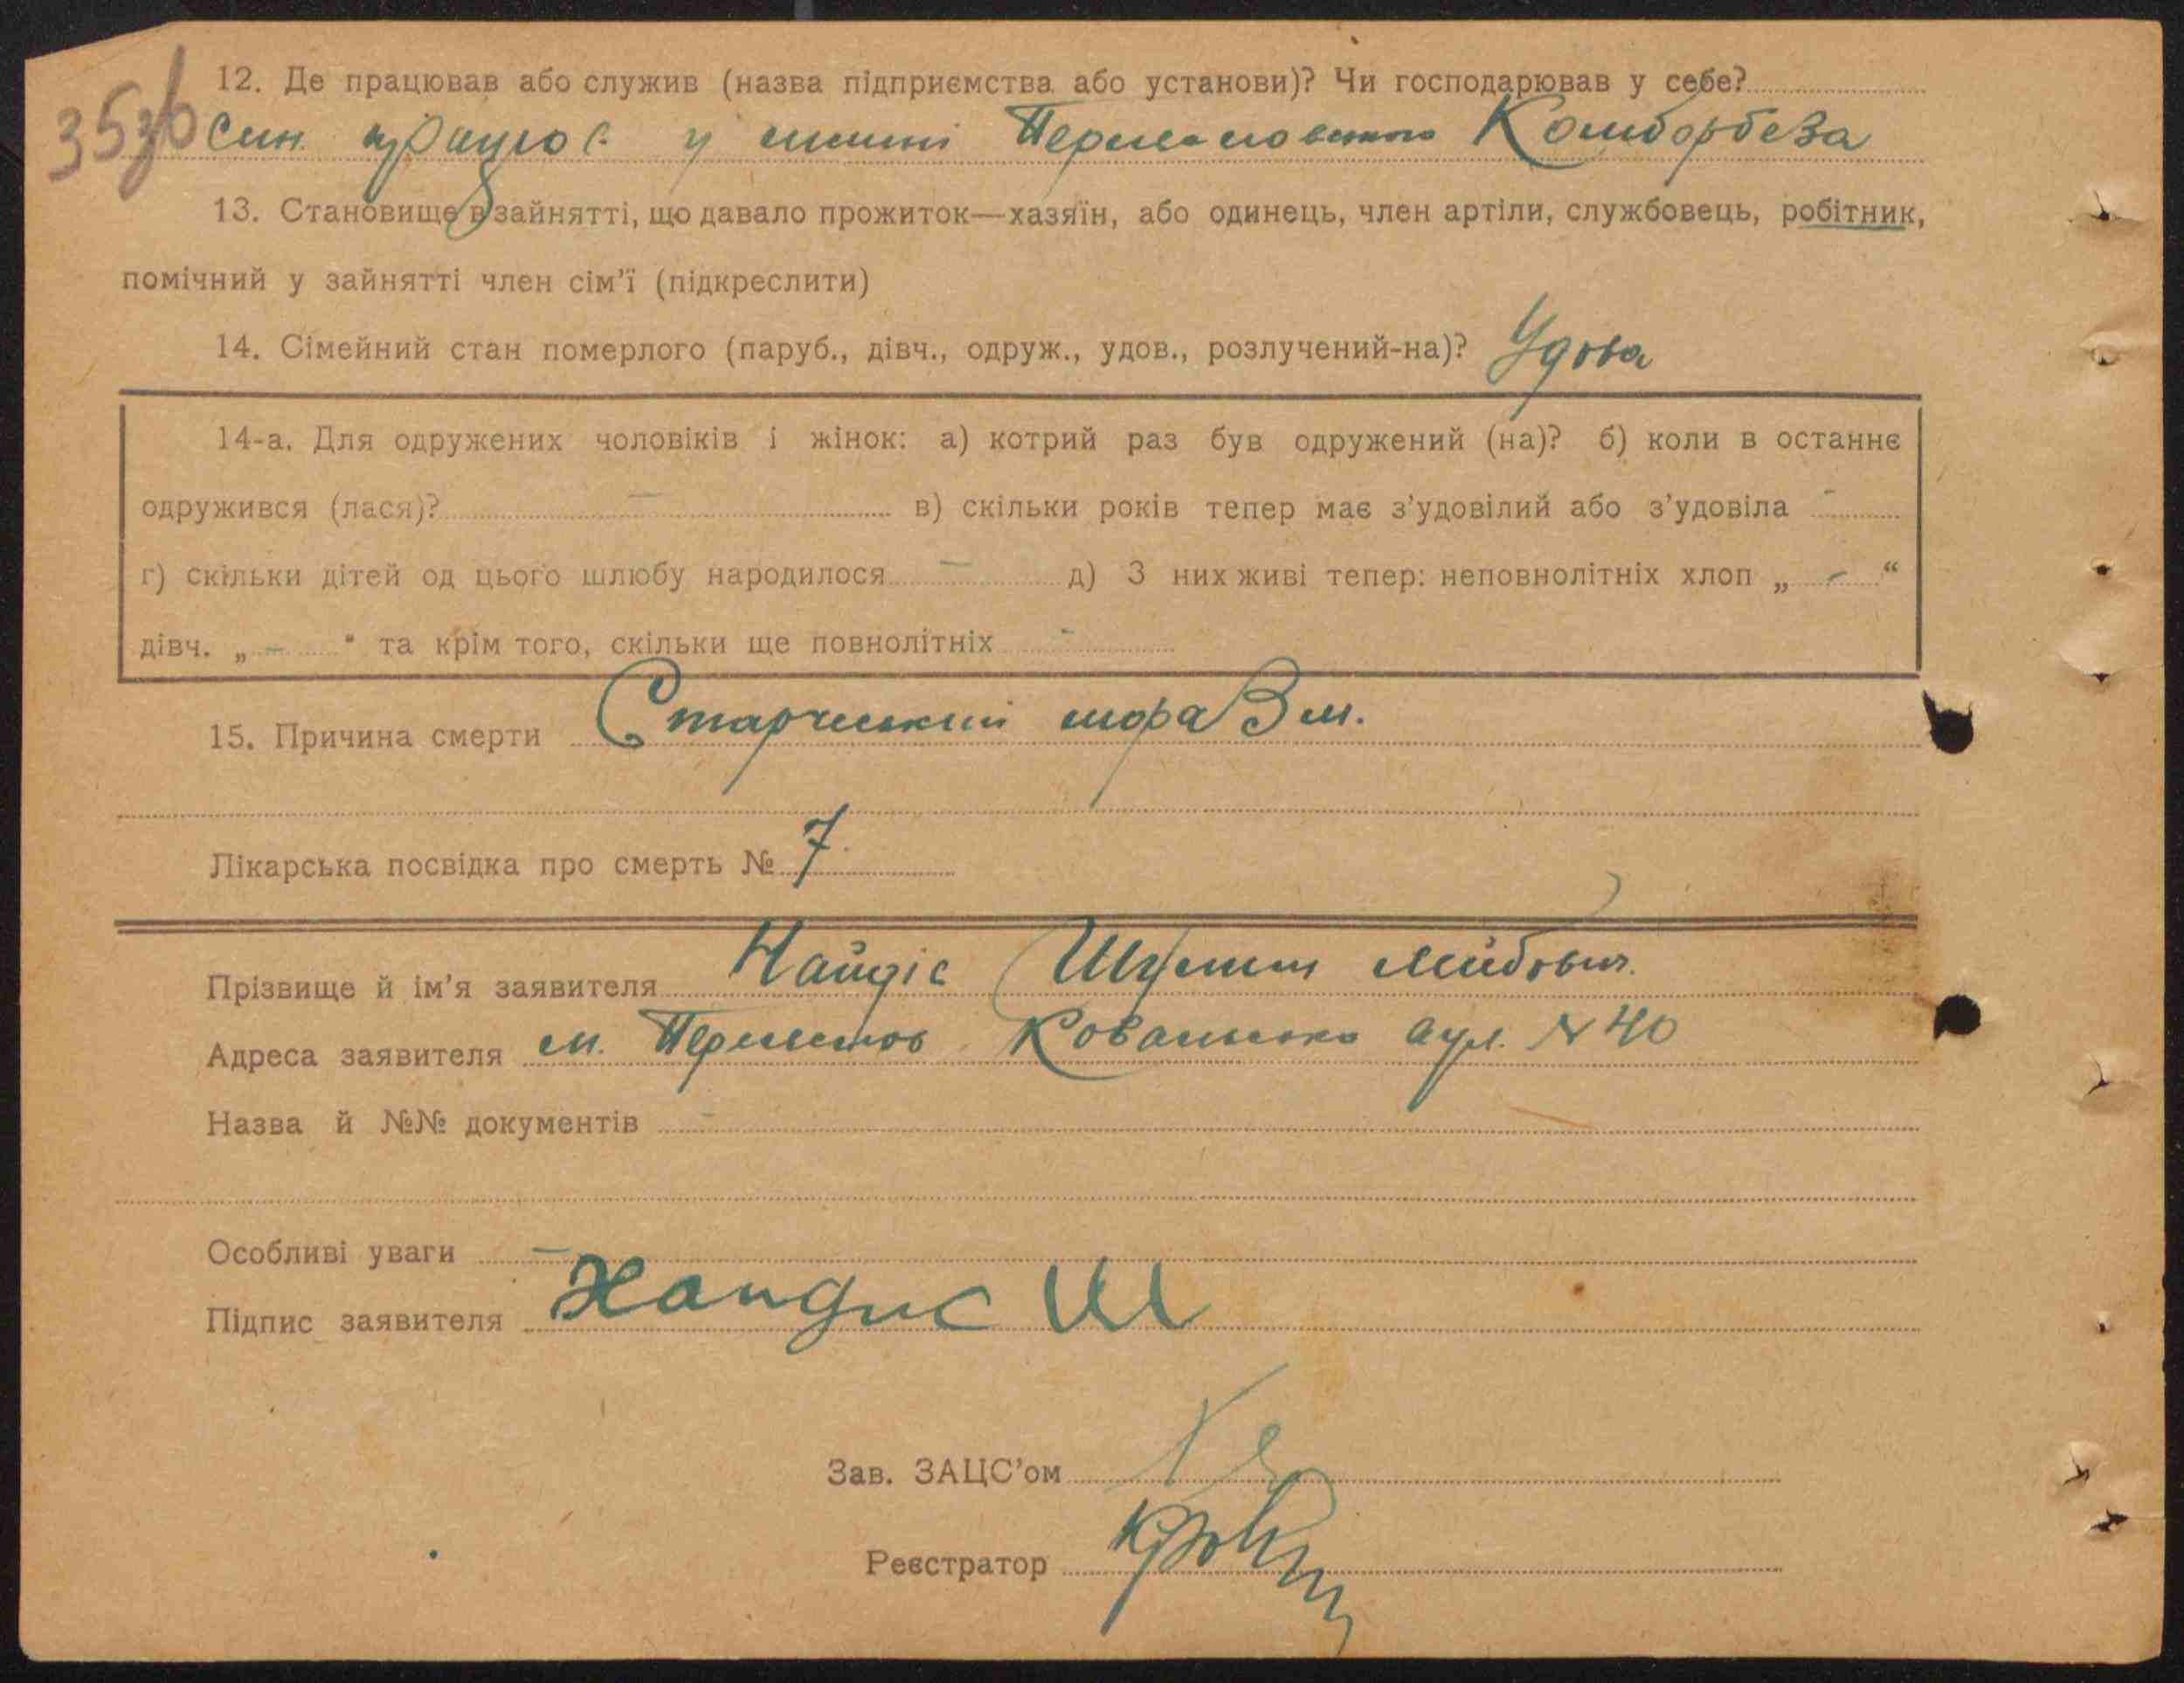 353б
12. Де працював або служив (назва підприємства або установи)? Чи господарював у себе?
Син працює у Комборбеза
13. Становище в зайнятті, що давало прожиток—хазяїн, або одинець, член артіли, службовець, робітник,
помічний у зайнятті член сім'ї (підкреслити)
14. Сімейний стан померлого (паруб., дівч., одруж., удов., розлучений-на)? Удова
14-а. Для одружених чоловіків і жінок: а) котрий раз був одружений (на)? б) коли в останнє
одружився (лася)? — в) скільки років тепер має з'удовілий або з'удовіла -
г) скільки дітей од цього шлюбу народилося — д) З них живі тепер: неповнолітніх хлоп „ - “
дівч. „ - “ та крім того, скільки ще повнолітніх -
15. Причина смерти Старческий маразм.
Лікарська посвідка про смерть № 7
Прізвище й ім'я заявителя Найдіс Шулим Лейбович.
Адреса заявителя м. Ковальська вул. № 40
Назва й №№ документів -
Особливі уваги —
Підпис заявителя Найдис Ш
Зав. ЗАЦС'ом
Реєстратор